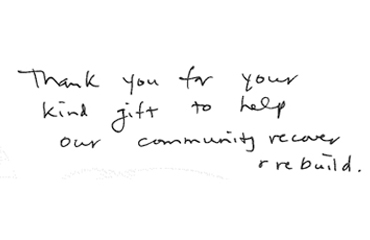 Thank you for your
kind gift to help
our community recover
+ rebuild.